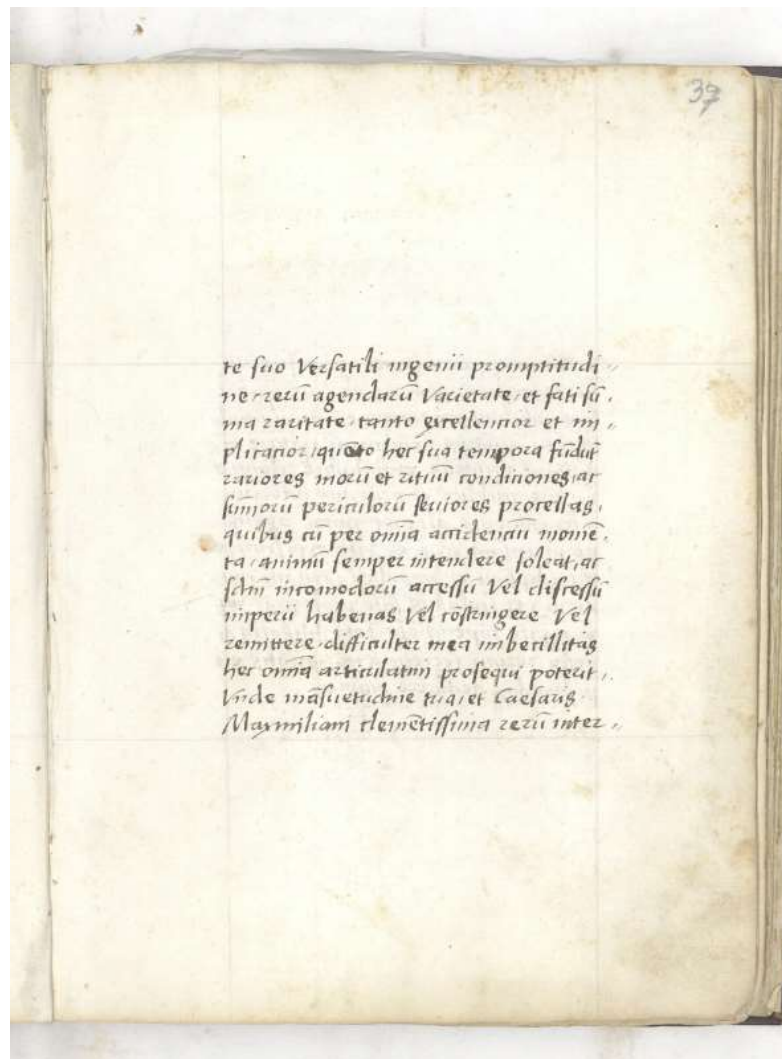 37
te suo Versatili ingenii promptitudi//
ne, rerū agendarū Varietate, et fati sū,
ma raritate, tanto excellencior et im,
plicacior, quāto hec sua tempora fūdūt
rariores morū et rituū condiciones, ac
sūmorū periculorū seuiores procellas,
quibus cū per omīa accidenciū momē,
ta, animū semper intendere soleat, ac
incomodorū accessū Vel discessū
imperii habenas Vel cōstringere Vel
remittere, difficulter mea imbecillitas
hec omīa articulatim prosequi poterit,
Vnde māsuetudine tua, et Caesaris
Maxmiliani clemētissima rerū inter//